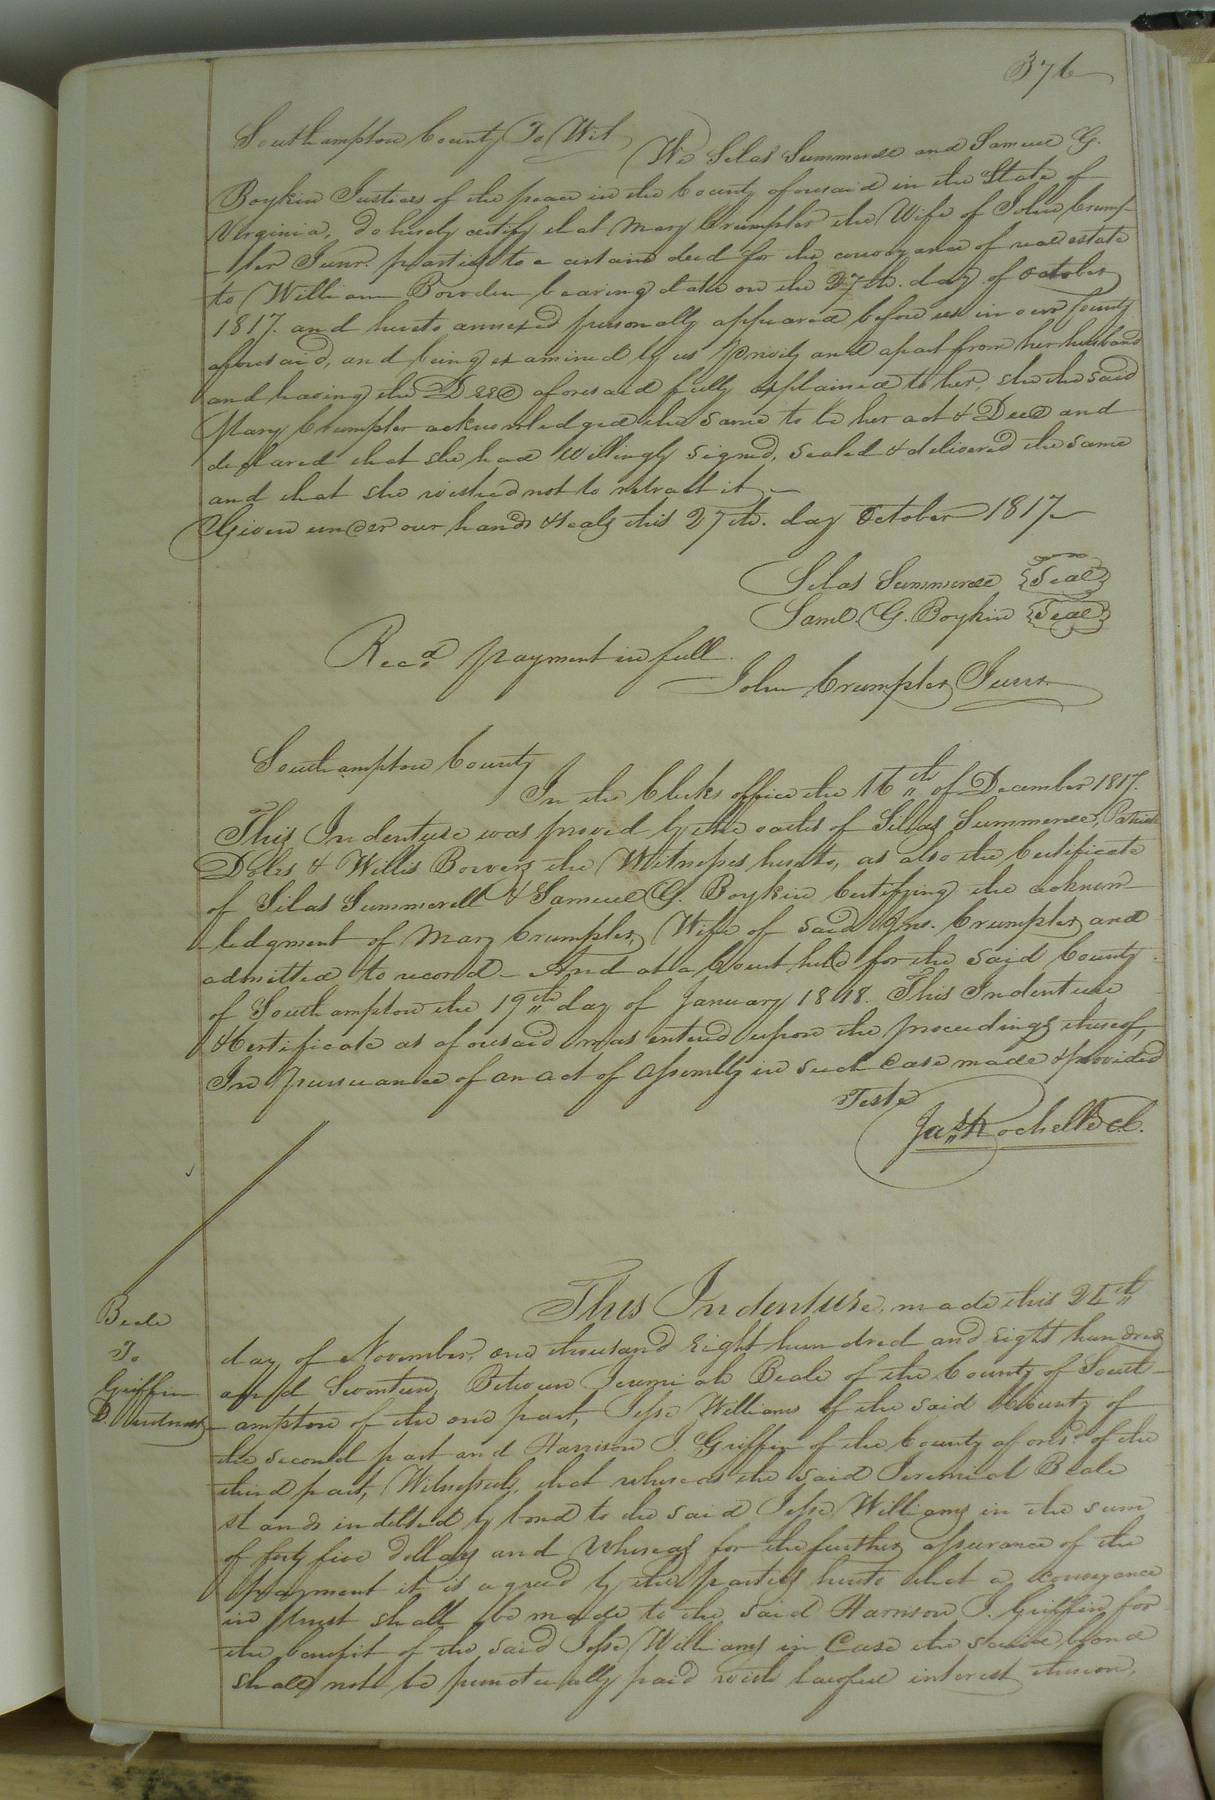 376
Southampton County To Wit
We Silas Summerell and Samuel G.
Boykin Justices of the peace in the County aforesaid in the State of
Virginia, do hereby certify that Mary Crumpler the Wife of John Crump-
-ler Junr. parties to a certain deed for the conveyance of real estate
to William Bowden bearing date on the 27th. day of October
1817. and hereto annexed personally appeared before us in our County
aforesaid, and being examined by us privily and apart from her husband
and having the Deed aforesaid fully explained to her, she the said
Mary Crumpler acknowledged the same to be her act & Deed and
declared that she had willingly signed, sealed & delivered the same
and that she wished not to retract it –
Given under our hands & seals this 27th. day October 1817 –
Silas Summerell {Seal}
Saml. G. Boykin {Seal}
Recd payment in full.
John Crumpler Junr.
Southampton County
In the Clerks office the 16th of December 1817.
This Indenture was proved by the oaths of Silas Summerell,
Doles & Willis Bowers the Witnesses hereto, as also the Certificate
of Silas Summerell & Samuel G. Boykin Certifying the acknow-
-ledgment of Mary Crumpler, Wife of said Jno. Crumpler, and
admitted to record – And at a Court held for the said County
of Southampton the 19th day of January 1818. This Indenture
& Certificate as aforesaid was entered upon the proceedings thereof,
In pursuance of an act of Assembly in such case made & provided
Teste
Jas Rochelle Cl.
Beale
To
Griffin
D.
This Indenture, made this 24th
day of November, one thousand eight hundred and eight hundred
and Seventeen, Between Jeremiah Beale of the County of South-
-ampton of the one part, Jesse Williams of the said County of
the second part and Harrison J. Griffin of the County aforesd. of the
third part, Witnesseth, that whereas the said Jeremiah Beale
stands indebted by bond to the said Jesse Williams in the sum
of forty five dollars and Whereas for the further assurance of the
payment it is agreed by the parties hereto that a conveyance
in trust shall be made to the said Harrison J. Griffin for
the benefit of the said Jesse Williams in Case the said bond
shall not be punctually paid with lawful interest thereon,